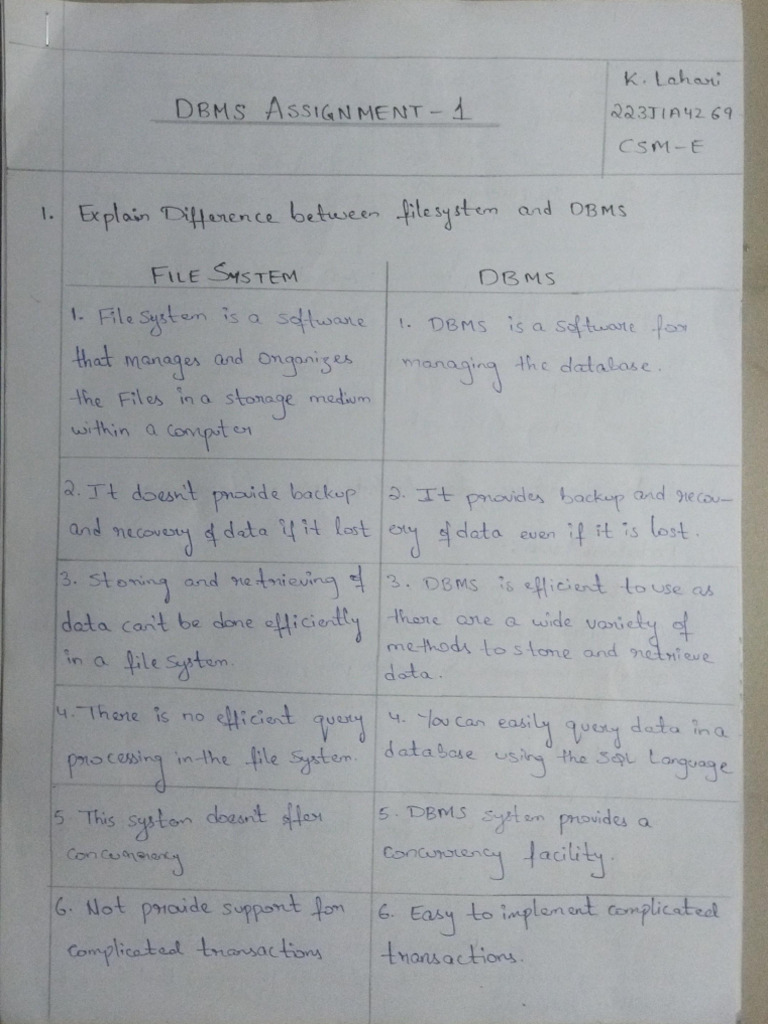 DBMS ASSIGNMENT - 1
K. Lahari
223J1A4269
CSM-E
1. Explain Difference between filesystem and DBMS
FILE SYSTEM
1. File system is a software
that manages and organizes
the Files in a storage medium
within a computer
2. It doesn't provide backup
and recovery of data if it lost
3. Storing and retrieving of
data can't be done efficiently
in a file system.
4. There is no efficient query
processing in the file system.
5 This system doesn't offer
concurrency
6. Not provide support for
complicated transactions
DBMS
1. DBMS is a software for
managing the database.
2. It provides backup and recov-
ery of data even if it is lost.
3. DBMS is efficient to use as
there are a wide variety of
methods to store and retrieve
data.
4. You can easily query data in a
database using the SQL Language
5. DBMS system provides a
concurrency facility.
6. Easy to implement complicated
transactions.